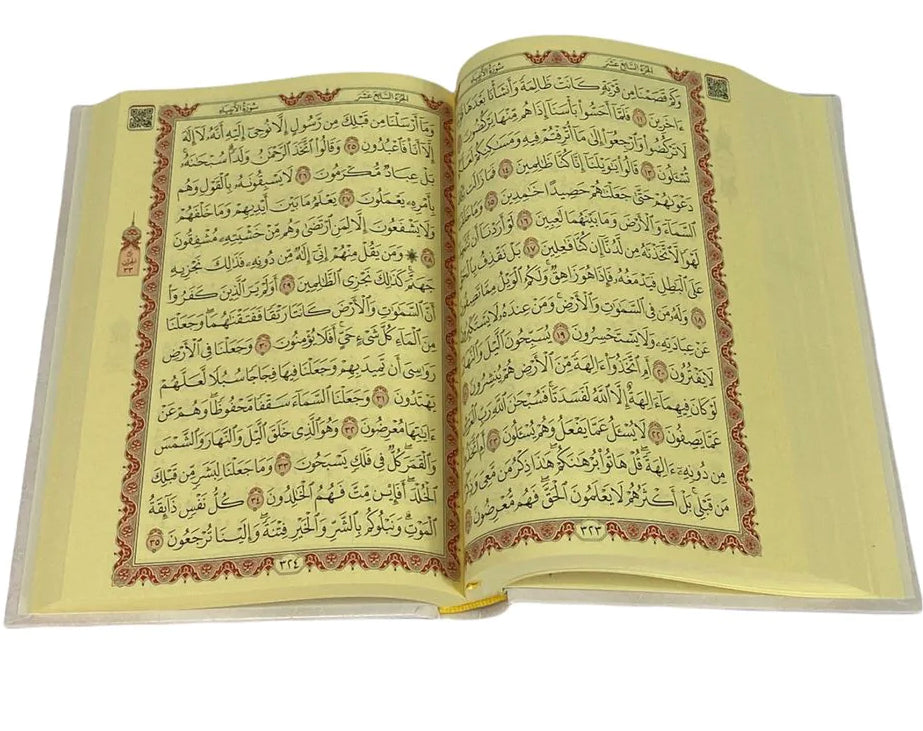 الجزء السابع عشر
سورة الأنبياء
وَكَمْ قَصَمْنَا مِن قَرْيَةٍ كَانَتْ ظَالِمَةً وَأَنشَأْنَا بَعْدَهَا
ءَاخَرِينَ ١١ فَلَمَّآ أَحَسُّوا۟ بَأْسَنَآ إِذَا هُم مِّنْهَا يَرْكُضُونَ
لَا تَرْكُضُوا۟ وَٱرْجِعُوٓا۟ إِلَىٰ مَآ أُتْرِفْتُمْ فِيهِ وَمَسَٰكِنِكُمْ
تُسْـَٔلُونَ ١٣ قَالُوا۟ يَٰوَيْلَنَآ إِنَّا كُنَّا ظَٰلِمِينَ ١٤ فَمَا زَالَت
دَعْوَىٰهُمْ حَتَّىٰ جَعَلْنَٰهُمْ حَصِيدًا خَٰمِدِينَ ١٥ وَمَا
ٱلسَّمَآءَ وَٱلْأَرْضَ وَمَا بَيْنَهُمَا لَٰعِبِينَ ١٦ لَوْ أَرَدْنَآ أَن
لَهْوًا لَّٱتَّخَذْنَٰهُ مِن لَّدُنَّآ إِن كُنَّا فَٰعِلِينَ ١٧ بَلْ نَقْذِفُ
عَلَى ٱلْبَٰطِلِ فَيَدْمَغُهُۥ فَإِذَا هُوَ زَاهِقٌ ۚ وَلَكُمُ ٱلْوَيْلُ مِمَّا
١٨ وَلَهُۥ مَن فِى ٱلسَّمَٰوَٰتِ وَٱلْأَرْضِ ۚ وَمَنْ عِندَهُۥ لَا
عَنْ عِبَادَتِهِۦ وَلَا يَسْتَحْسِرُونَ ١٩ يُسَبِّحُونَ ٱلَّيْلَ
لَا يَفْتُرُونَ ٢٠ أَمِ ٱتَّخَذُوٓا۟ ءَالِهَةً مِّنَ ٱلْأَرْضِ هُمْ يُنشِرُونَ
لَوْ كَانَ فِيهِمَآ ءَالِهَةٌ إِلَّا ٱللَّهُ لَفَسَدَتَا ۚ فَسُبْحَٰنَ ٱللَّهِ رَبِّ
عَمَّا يَصِفُونَ ٢٢ لَا يُسْـَٔلُ عَمَّا يَفْعَلُ وَهُمْ يُسْـَٔلُونَ ٢٣ أَمِ
مِن دُونِهِۦٓ ءَالِهَةً ۖ قُلْ هَاتُوا۟ بُرْهَٰنَكُمْ ۖ هَٰذَا ذِكْرُ مَن مَّعِىَ
مَن قَبْلِى ۗ بَلْ أَكْثَرُهُمْ لَا يَعْلَمُونَ ٱلْحَقَّ ۖ فَهُم مُّعْرِضُونَ
٣٢٣
الجزء السابع عشر
سورة الأنبياء
وَمَآ أَرْسَلْنَا مِن قَبْلِكَ مِن رَّسُولٍ إِلَّا نُوحِىٓ إِلَيْهِ أَنَّهُۥ لَآ إِلَٰهَ
إِلَّآ أَنَا۠ فَٱعْبُدُونِ ٢٥ وَقَالُوا۟ ٱتَّخَذَ ٱلرَّحْمَٰنُ وَلَدًا ۗ سُبْحَٰنَهُۥ ۚ
بَلْ عِبَادٌ مُّكْرَمُونَ ٢٦ لَا يَسْبِقُونَهُۥ بِٱلْقَوْلِ وَهُم
بِأَمْرِهِۦ يَعْمَلُونَ ٢٧ يَعْلَمُ مَا بَيْنَ أَيْدِيهِمْ وَمَا خَلْفَهُمْ
وَلَا يَشْفَعُونَ إِلَّا لِمَنِ ٱرْتَضَىٰ وَهُم مِّنْ خَشْيَتِهِۦ مُشْفِقُونَ
٢٨ ۞ وَمَن يَقُلْ مِنْهُمْ إِنِّىٓ إِلَٰهٌ مِّن دُونِهِۦ فَذَٰلِكَ نَجْزِيهِ
جَهَنَّمَ ۚ كَذَٰلِكَ نَجْزِى ٱلظَّٰلِمِينَ ٢٩ أَوَلَمْ يَرَ ٱلَّذِينَ كَفَرُوٓا۟
أَنَّ ٱلسَّمَٰوَٰتِ وَٱلْأَرْضَ كَانَتَا رَتْقًا فَفَتَقْنَٰهُمَا ۖ وَجَعَلْنَا
مِنَ ٱلْمَآءِ كُلَّ شَىْءٍ حَىٍّ ۖ أَفَلَا يُؤْمِنُونَ ٣٠ وَجَعَلْنَا فِى ٱلْأَرْضِ
رَوَٰسِىَ أَن تَمِيدَ بِهِمْ وَجَعَلْنَا فِيهَا فِجَاجًا سُبُلًا لَّعَلَّهُمْ
يَهْتَدُونَ ٣١ وَجَعَلْنَا ٱلسَّمَآءَ سَقْفًا مَّحْفُوظًا ۖ وَهُمْ عَنْ
ءَايَٰتِهَا مُعْرِضُونَ ٣٢ وَهُوَ ٱلَّذِى خَلَقَ ٱلَّيْلَ وَٱلنَّهَارَ وَٱلشَّمْسَ
وَٱلْقَمَرَ ۖ كُلٌّ فِى فَلَكٍ يَسْبَحُونَ ٣٣ وَمَا جَعَلْنَا لِبَشَرٍ مِّن قَبْلِكَ
ٱلْخُلْدَ ۖ أَفَإِي۟ن مِّتَّ فَهُمُ ٱلْخَٰلِدُونَ ٣٤ كُلُّ نَفْسٍ ذَآئِقَةُ
ٱلْمَوْتِ ۗ وَنَبْلُوكُم بِٱلشَّرِّ وَٱلْخَيْرِ فِتْنَةً ۖ وَإِلَيْنَا تُرْجَعُونَ ٣٥
٣٢٤